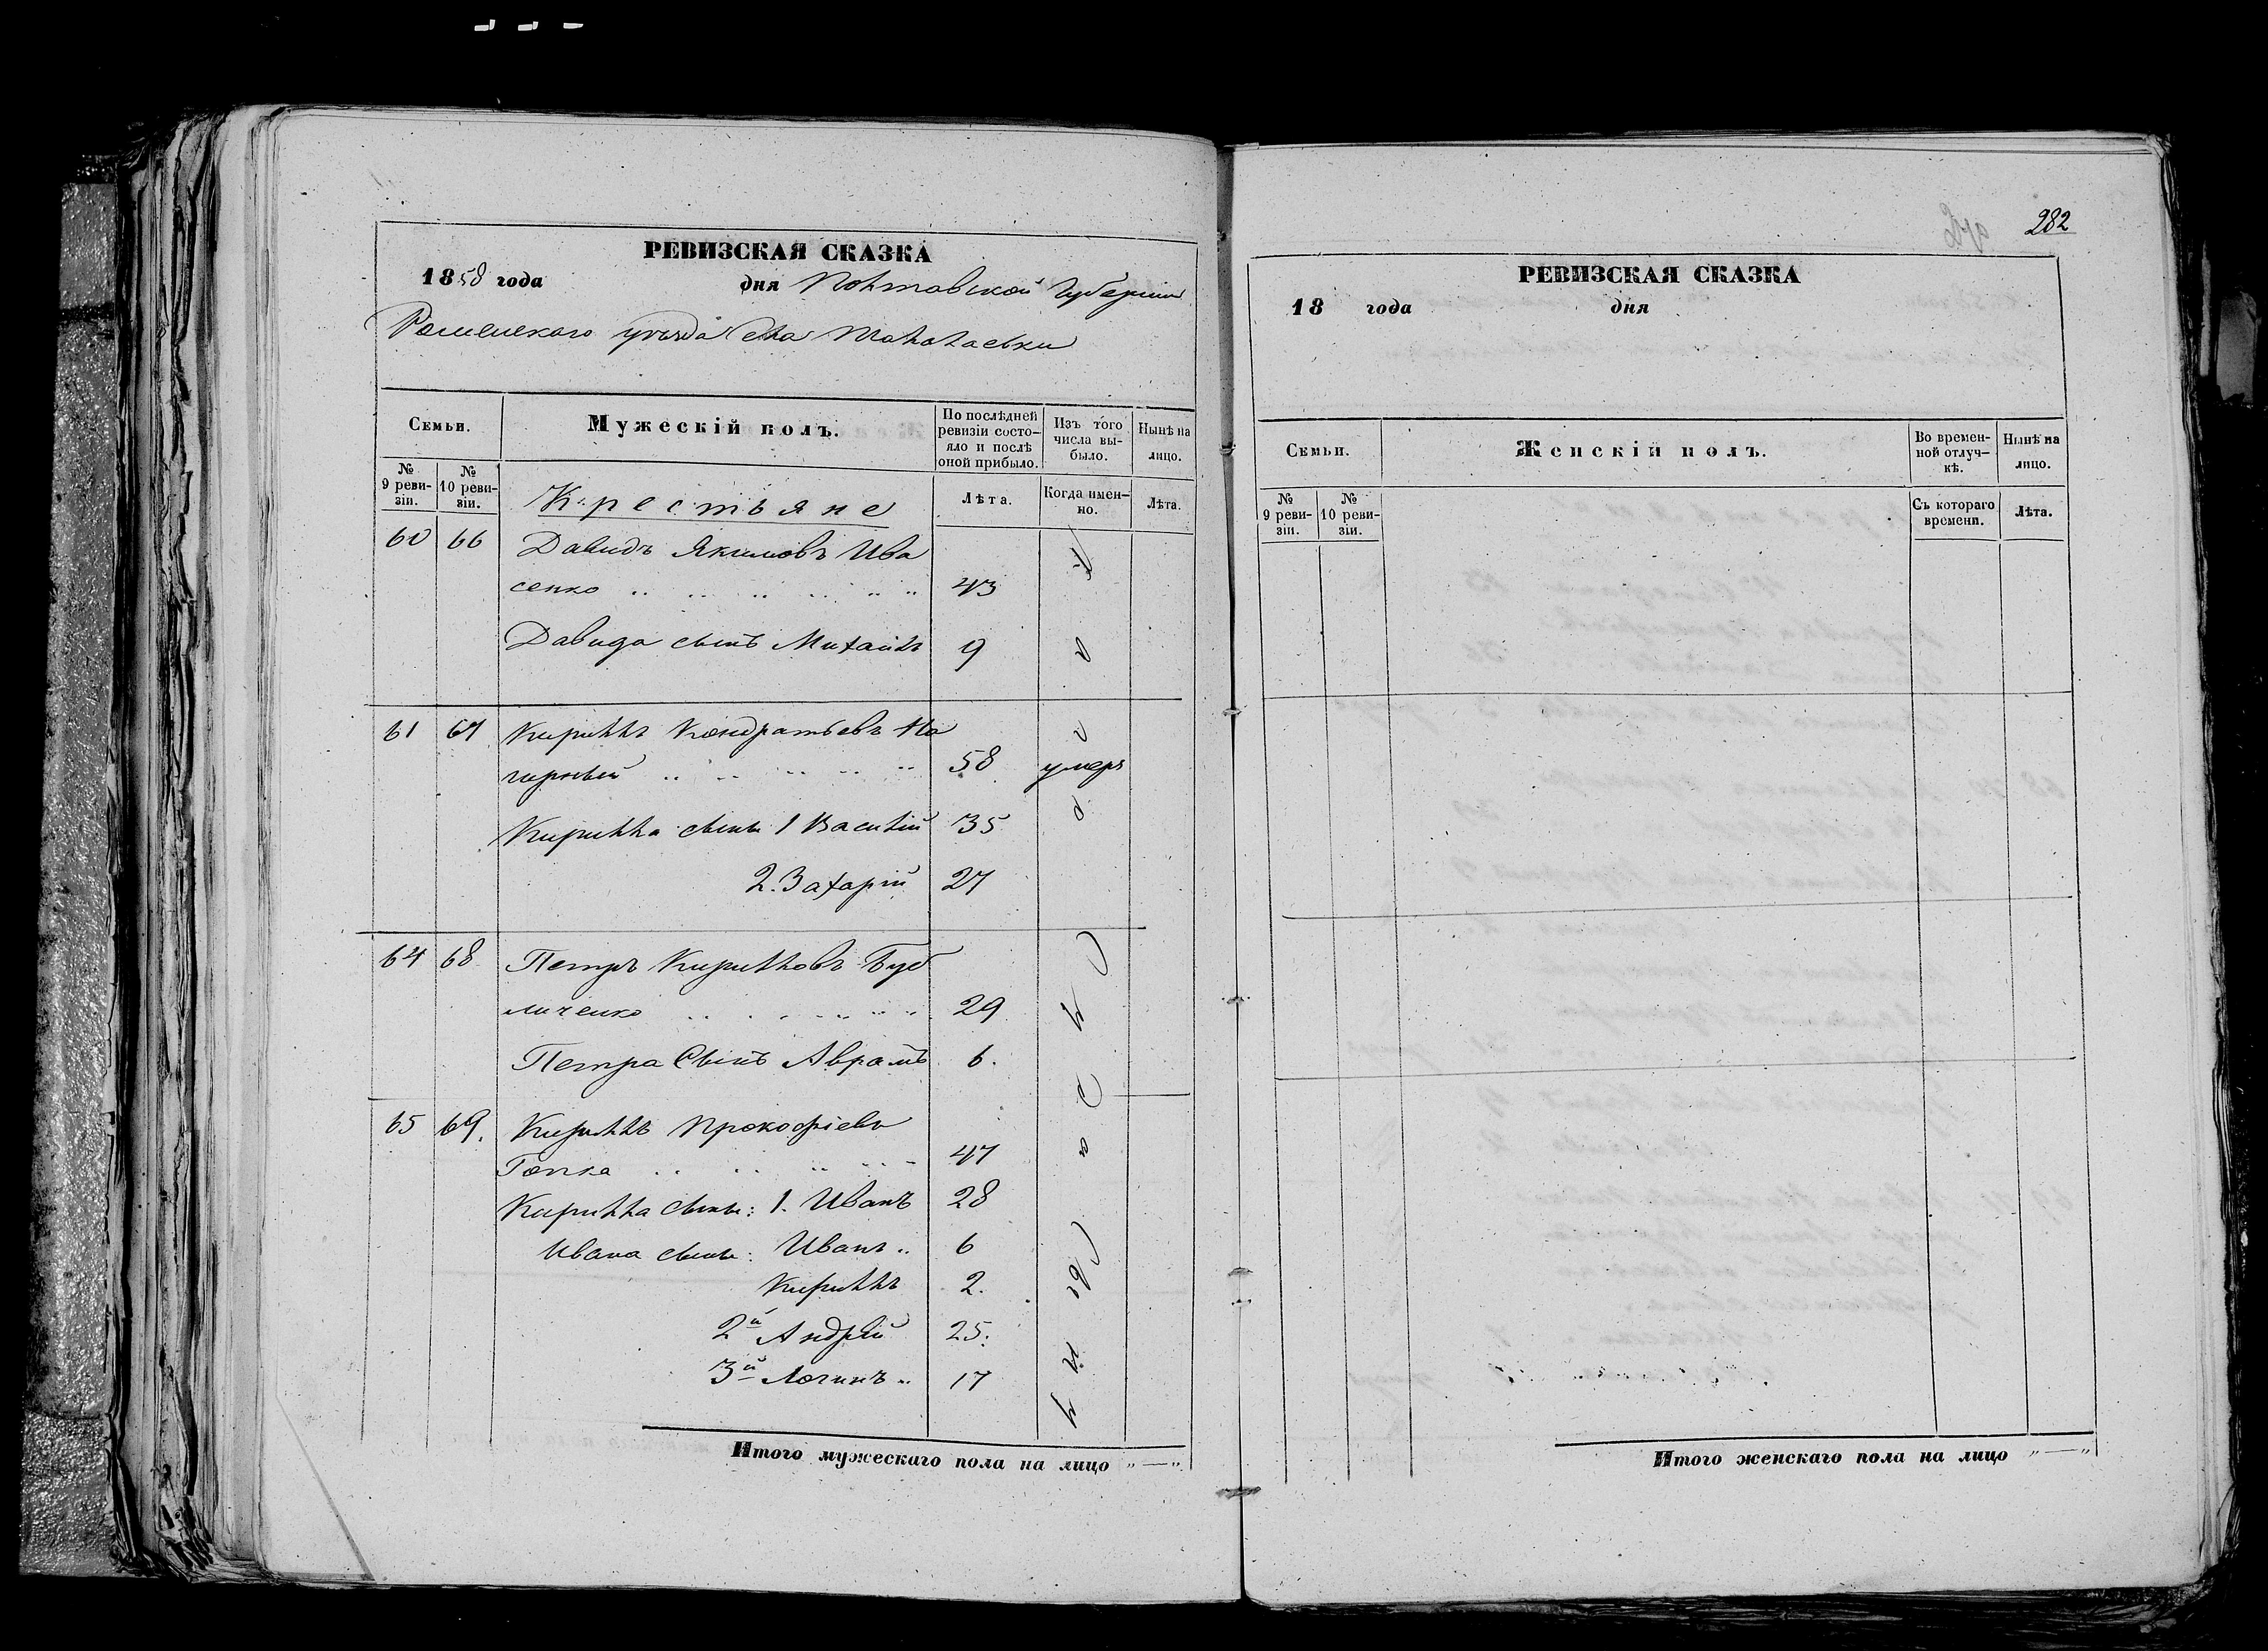 РЕВИЗСКАЯ СКАЗКА
1858 года дня Полтавской Губерніи
Роменскаго уѣзда села Талалаевки
Семьи.
Мужескій полъ.
По послѣдней ревизіи состо-
яло и послѣ
оной прибыло.
Изъ того
числа вы-
было.
Нынѣ на
лицо.
№
9 реви-
зіи.
№
10 реви-
зіи.
Крестьяне
Лѣта.
Когда имен-
но.
Лѣта.
60 66 Давидъ Якимовъ Ива
сенко 43
Давида сынъ Михаилъ 9
61 67 Кириллъ Кондратьевъ На
гирный 58 умеръ
Кирилла сыны 1 Василій 35
2. Захарій 27
64 68 Петръ Кирилловъ Буб
личенко 29
Петра Сынъ Аврамъ 6.
65 69. Кириллъ Прокофіевъ
Гопка 47
Кирилла сыны: 1. Иванъ 28
Ивана сыны: Иванъ 6
Кириллъ 2.
2й Андрей 25.
3й Логинъ 17
Итого мужескаго пола на лицо „—„
282
РЕВИЗСКАЯ СКАЗКА
18 года дня
Семьи.
Женскій полъ.
Во времен-
ной отлуч-
кѣ.
Нынѣ на
лицо.
№
9 реви-
зіи.
№
10 реви-
зіи.
Съ котораго
времени.
Лѣта.
Итого женскаго пола на лицо „—„